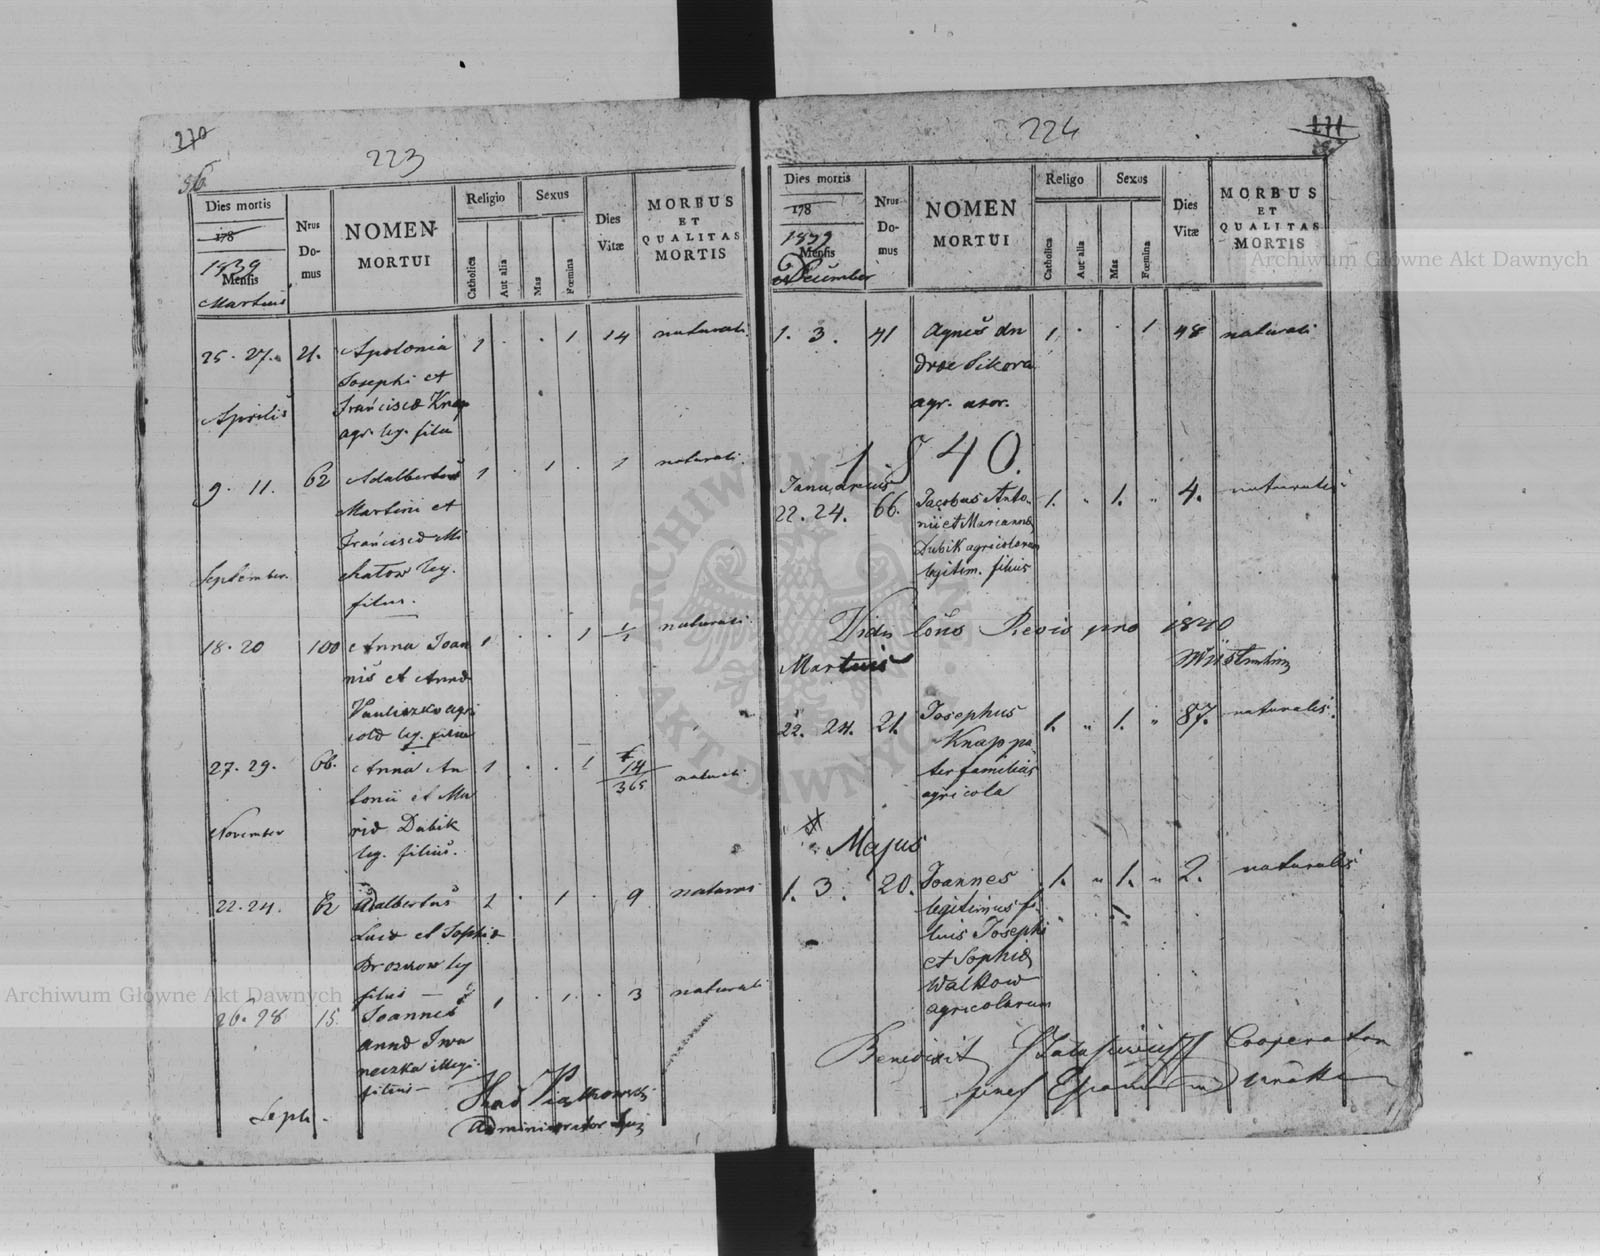 270
223
56
Dies mortis
178
1839
Mensis
Martius
Nrus
Do-
mus
NOMEN
MORTUI
Religio
Catholica
Aut alia
Sexus
Mas
Fœmina
Dies
Vitæ
MORBUS
ET
QUALITAS
MORTIS
25. 27. 21. Apolonia 1 . . 1 14 naturali
Josephi et
Francisca Knap
agr. leg. filia
Aprilis
9. 11. 62 Adalbertus 1 . 1 . 1 naturali.
Martini et
Francisca Mi
chatow leg.
filius.
September.
18. 20 100 Anna Joan 1 . . 1 1/1 naturali
nis et Anna
agri
cola leg. filia
27. 29. 66. Anna An 1 . . 1 14/365 naturali
tonii et Ma
ria Dubik
leg. filius.
November
22. 24. 62 Adalbertus 1 . 1 . 9 naturali
et Sophia
leg
filius —
26. 28 15. Joannes 1 . 1 . 3 naturali
Anna Iwa
neczka illegi
filius —
Administrator
Archiwum Główne Akt Dawnych
224
271
Dies mortis
178
1839
Mensis
December
Nrus
Do-
mus
NOMEN
MORTUI
Religo
Catholica
Aut alia
Sexus
Mas
Fœmina
Dies
Vitæ
MORBUS
ET
QUALITAS
MORTIS
Archiwum Główne Akt Dawnych
1. 3. 41 Agnes An 1. . . 1 48 naturali
dreæ Sikora
agr. uxor.
1840.
Januarius
22. 24. 66. Jacobus Anto- 1. " 1. " 4. naturalis
nii et Marianna
Dubik agricolarum
legitim. filius
Vidi pro 1840
Martius
22. 24. 21. Josephus 1. " 1. " 87. naturalis.
Knap pa
ter familias
agricola
Majus
1. 3. 20. Joannes 1. " 1. " 2. naturalis
legitimus fi
lius Josephi
et Sophia
Walkow
agricolarum
Benedixit Cooperator
ARCHIWUM GŁÓWNE AKT DAWNYCH